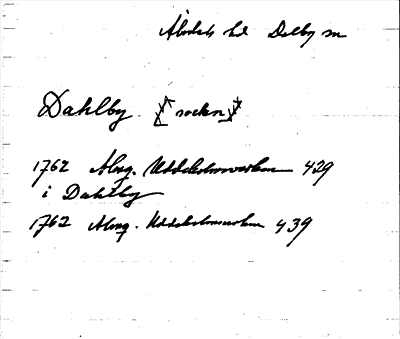 Älvdals hd Dalby sn
Dahlby [socken]
1762 Älvg. Uddeholmsverken 429
i Dahlby
1762 Älvg. Uddeholmsverken 439